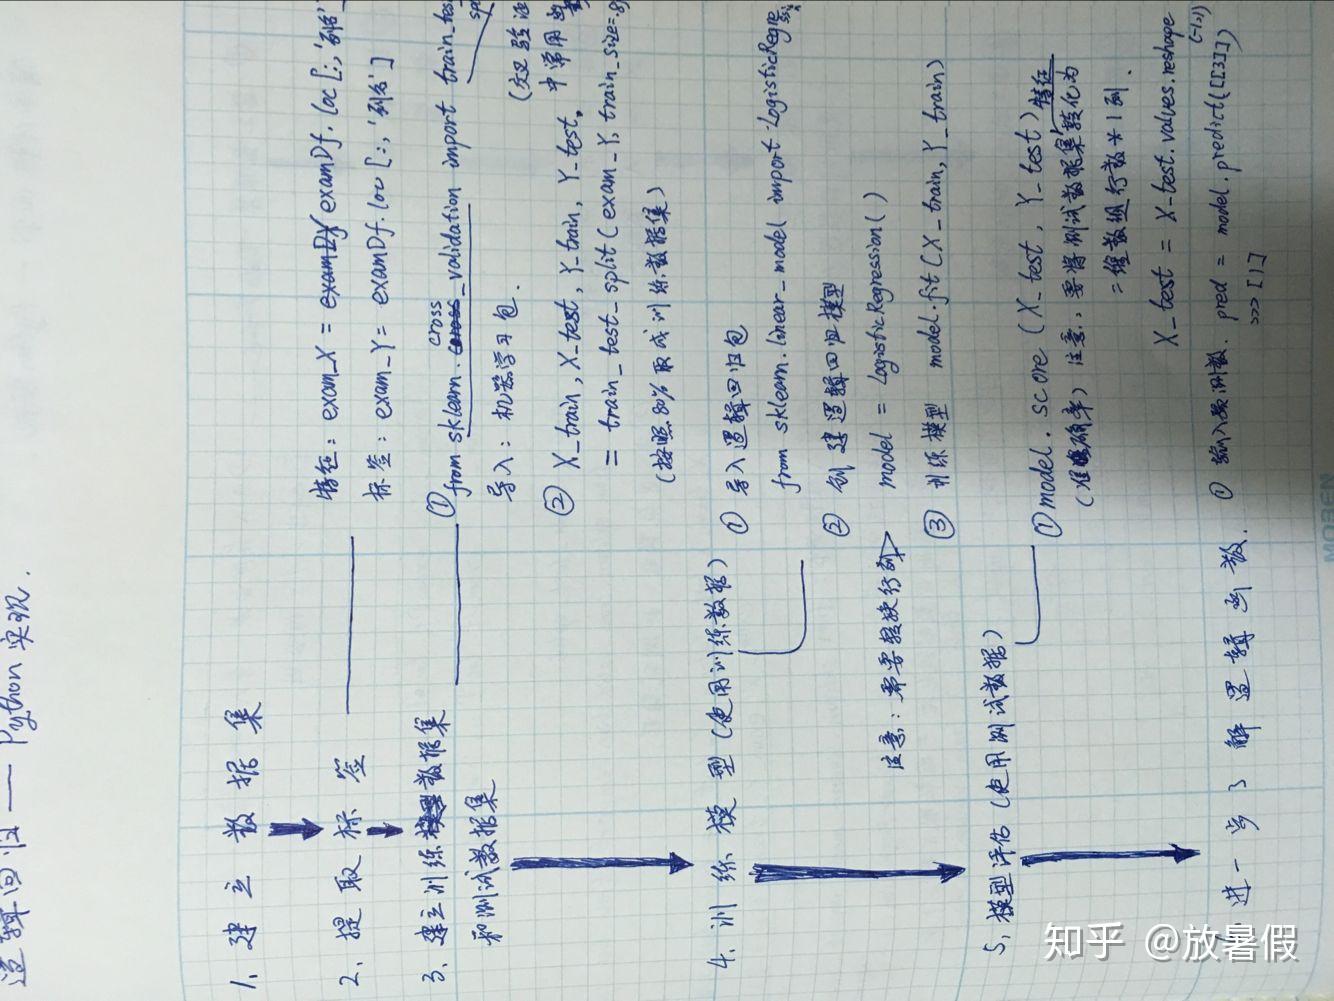 逻辑回归 — Python 实现.
1、建立数据集
2、提取标签
特征: exam_X = examDf.loc[:,'列名']
标签: exam_Y = examDf.loc[:,'列名']
3、建立训练数据集
和测试数据集
① from sklearn.cross_validation import train_test_
导入: 机器学习包.
(交叉验证
中常用
② X_train, X_test, Y_train, Y_test.
= train_test_split(exam_X, exam_Y, train_size=.8)
(按照80%取成训练数据集)
4、训练模型(使用训练数据)
① 导入逻辑回归包
from sklearn.linear_model import LogisticRegre
② 创建逻辑回归模型
model = LogisticRegression()
③ 训练模型 model.fit(X_train, Y_train)
注意: 都要转换行列
5、模型评估(使用测试数据)
① model.score(X_test, Y_test)
(准确率) 注意, 要将测试数据集特征转化为
二维数组行数*1列.
X_test = X_test.values.reshape(-1,1)
进一步了解逻辑函数.
① 输入数测数. pred = model.predict([[3]])
>>> [1]
MOREN
知乎 @放暑假